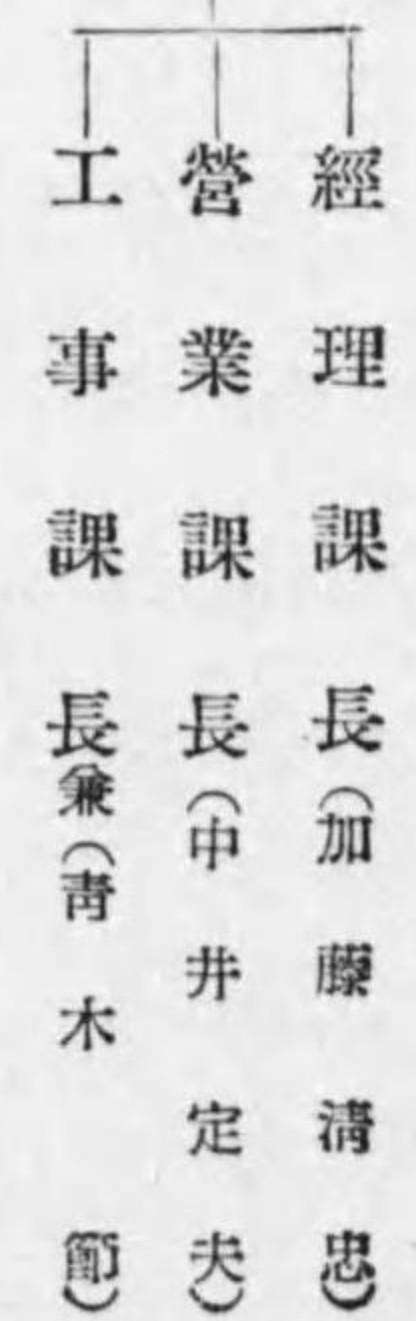 經理課長(加藤淸忠)
營業課長(中井定夫)
工事課長兼(靑木節)